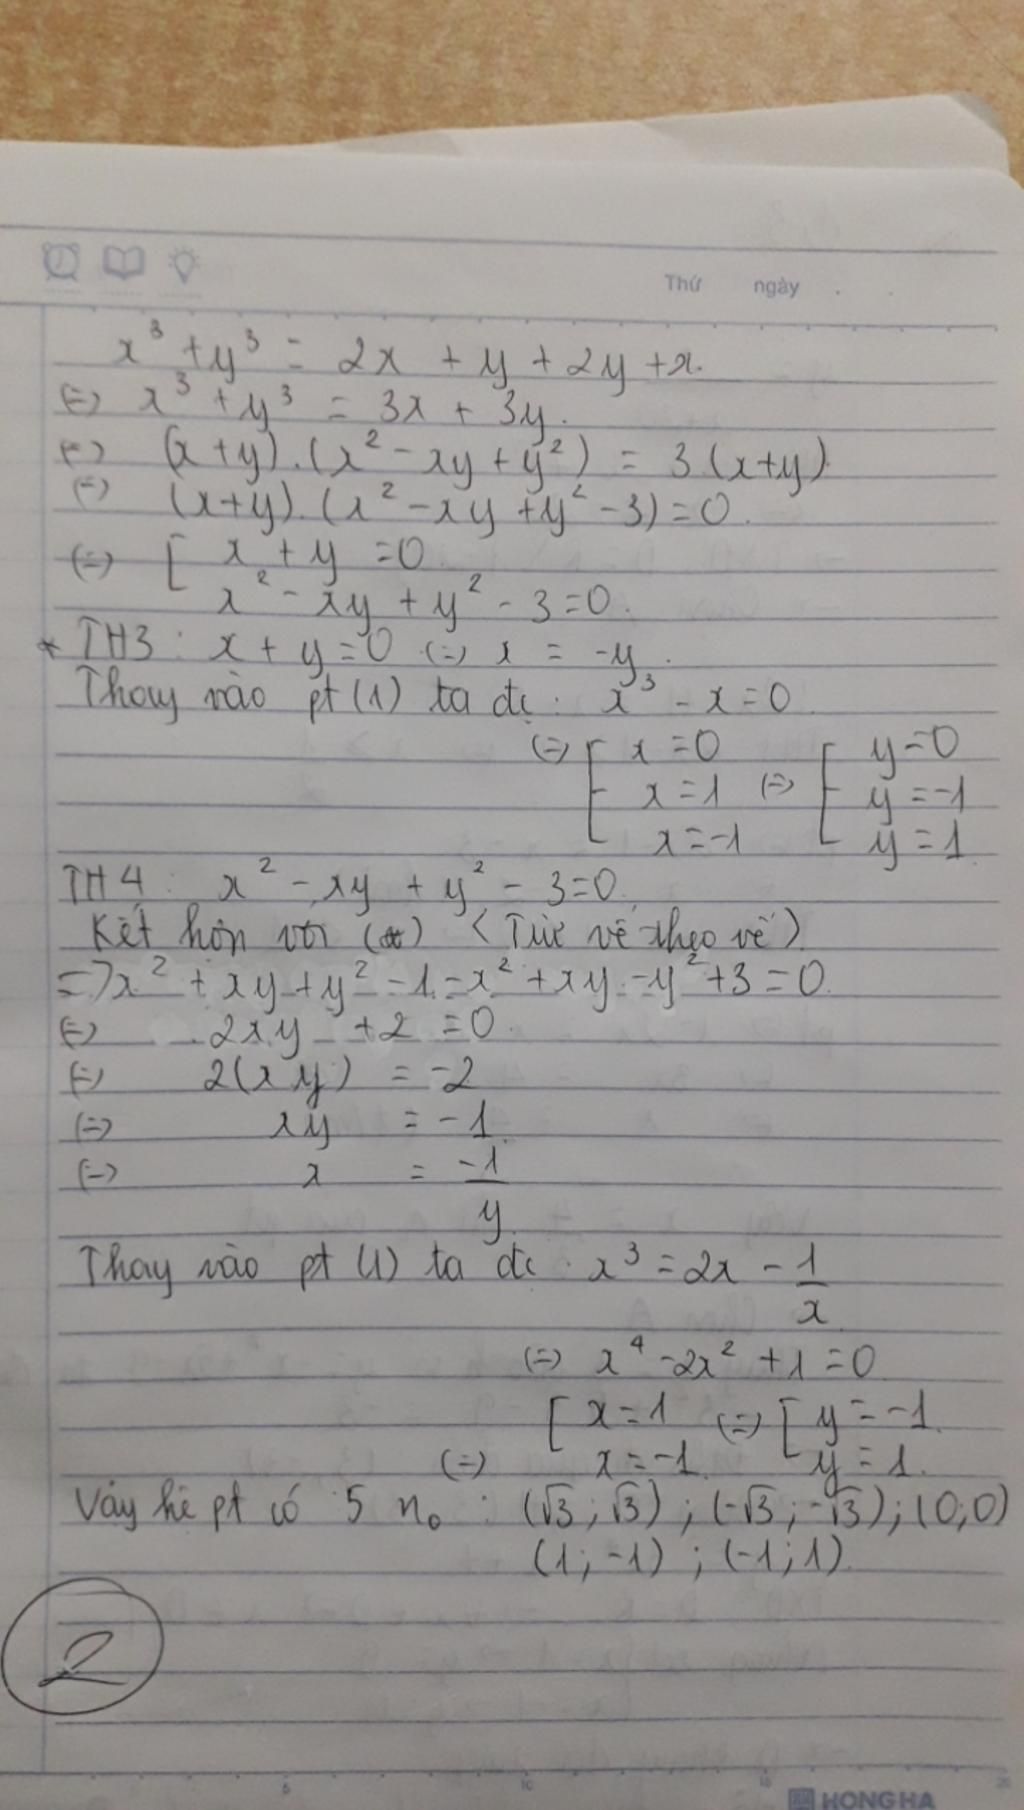 Thứ ngày
x³ + y³ = 2x + y + 2y + x.
(=) x³ + y³ = 3x + 3y.
(=) (x+y).(x² - xy + y²) = 3(x+y)
(=) (x+y).(x² - xy + y² - 3) = 0.
(=) [ x + y = 0
x² - xy + y² - 3 = 0.
* TH3 : x + y = 0 (=) x = -y.
Thay vào pt (1) ta đc : x³ - x = 0
(=) [ x = 0 [ y = 0
x = 1 (=) y = -1
x = -1 y = 1
TH4 : x² - xy + y² - 3 = 0.
Kết hôn với (*) (Trừ vế theo vế)
=> x² + xy + y² - 1 - x² + xy - y² + 3 = 0.
(=) 2xy + 2 = 0.
(=) 2(xy) = -2
(=) xy = -1
(=) x = -1/y
Thay vào pt (1) ta đc : x³ = 2x - 1/x
(=) x⁴ - 2x² + 1 = 0
[ x = 1 (=) [ y = -1
(=) x = -1 y = 1.
Vậy hê pt có 5 n₀ : (√3; √3) ; (-√3; -√3); (0;0)
(1; -1) ; (-1; 1).
2
5 10 15 20
HONG HA